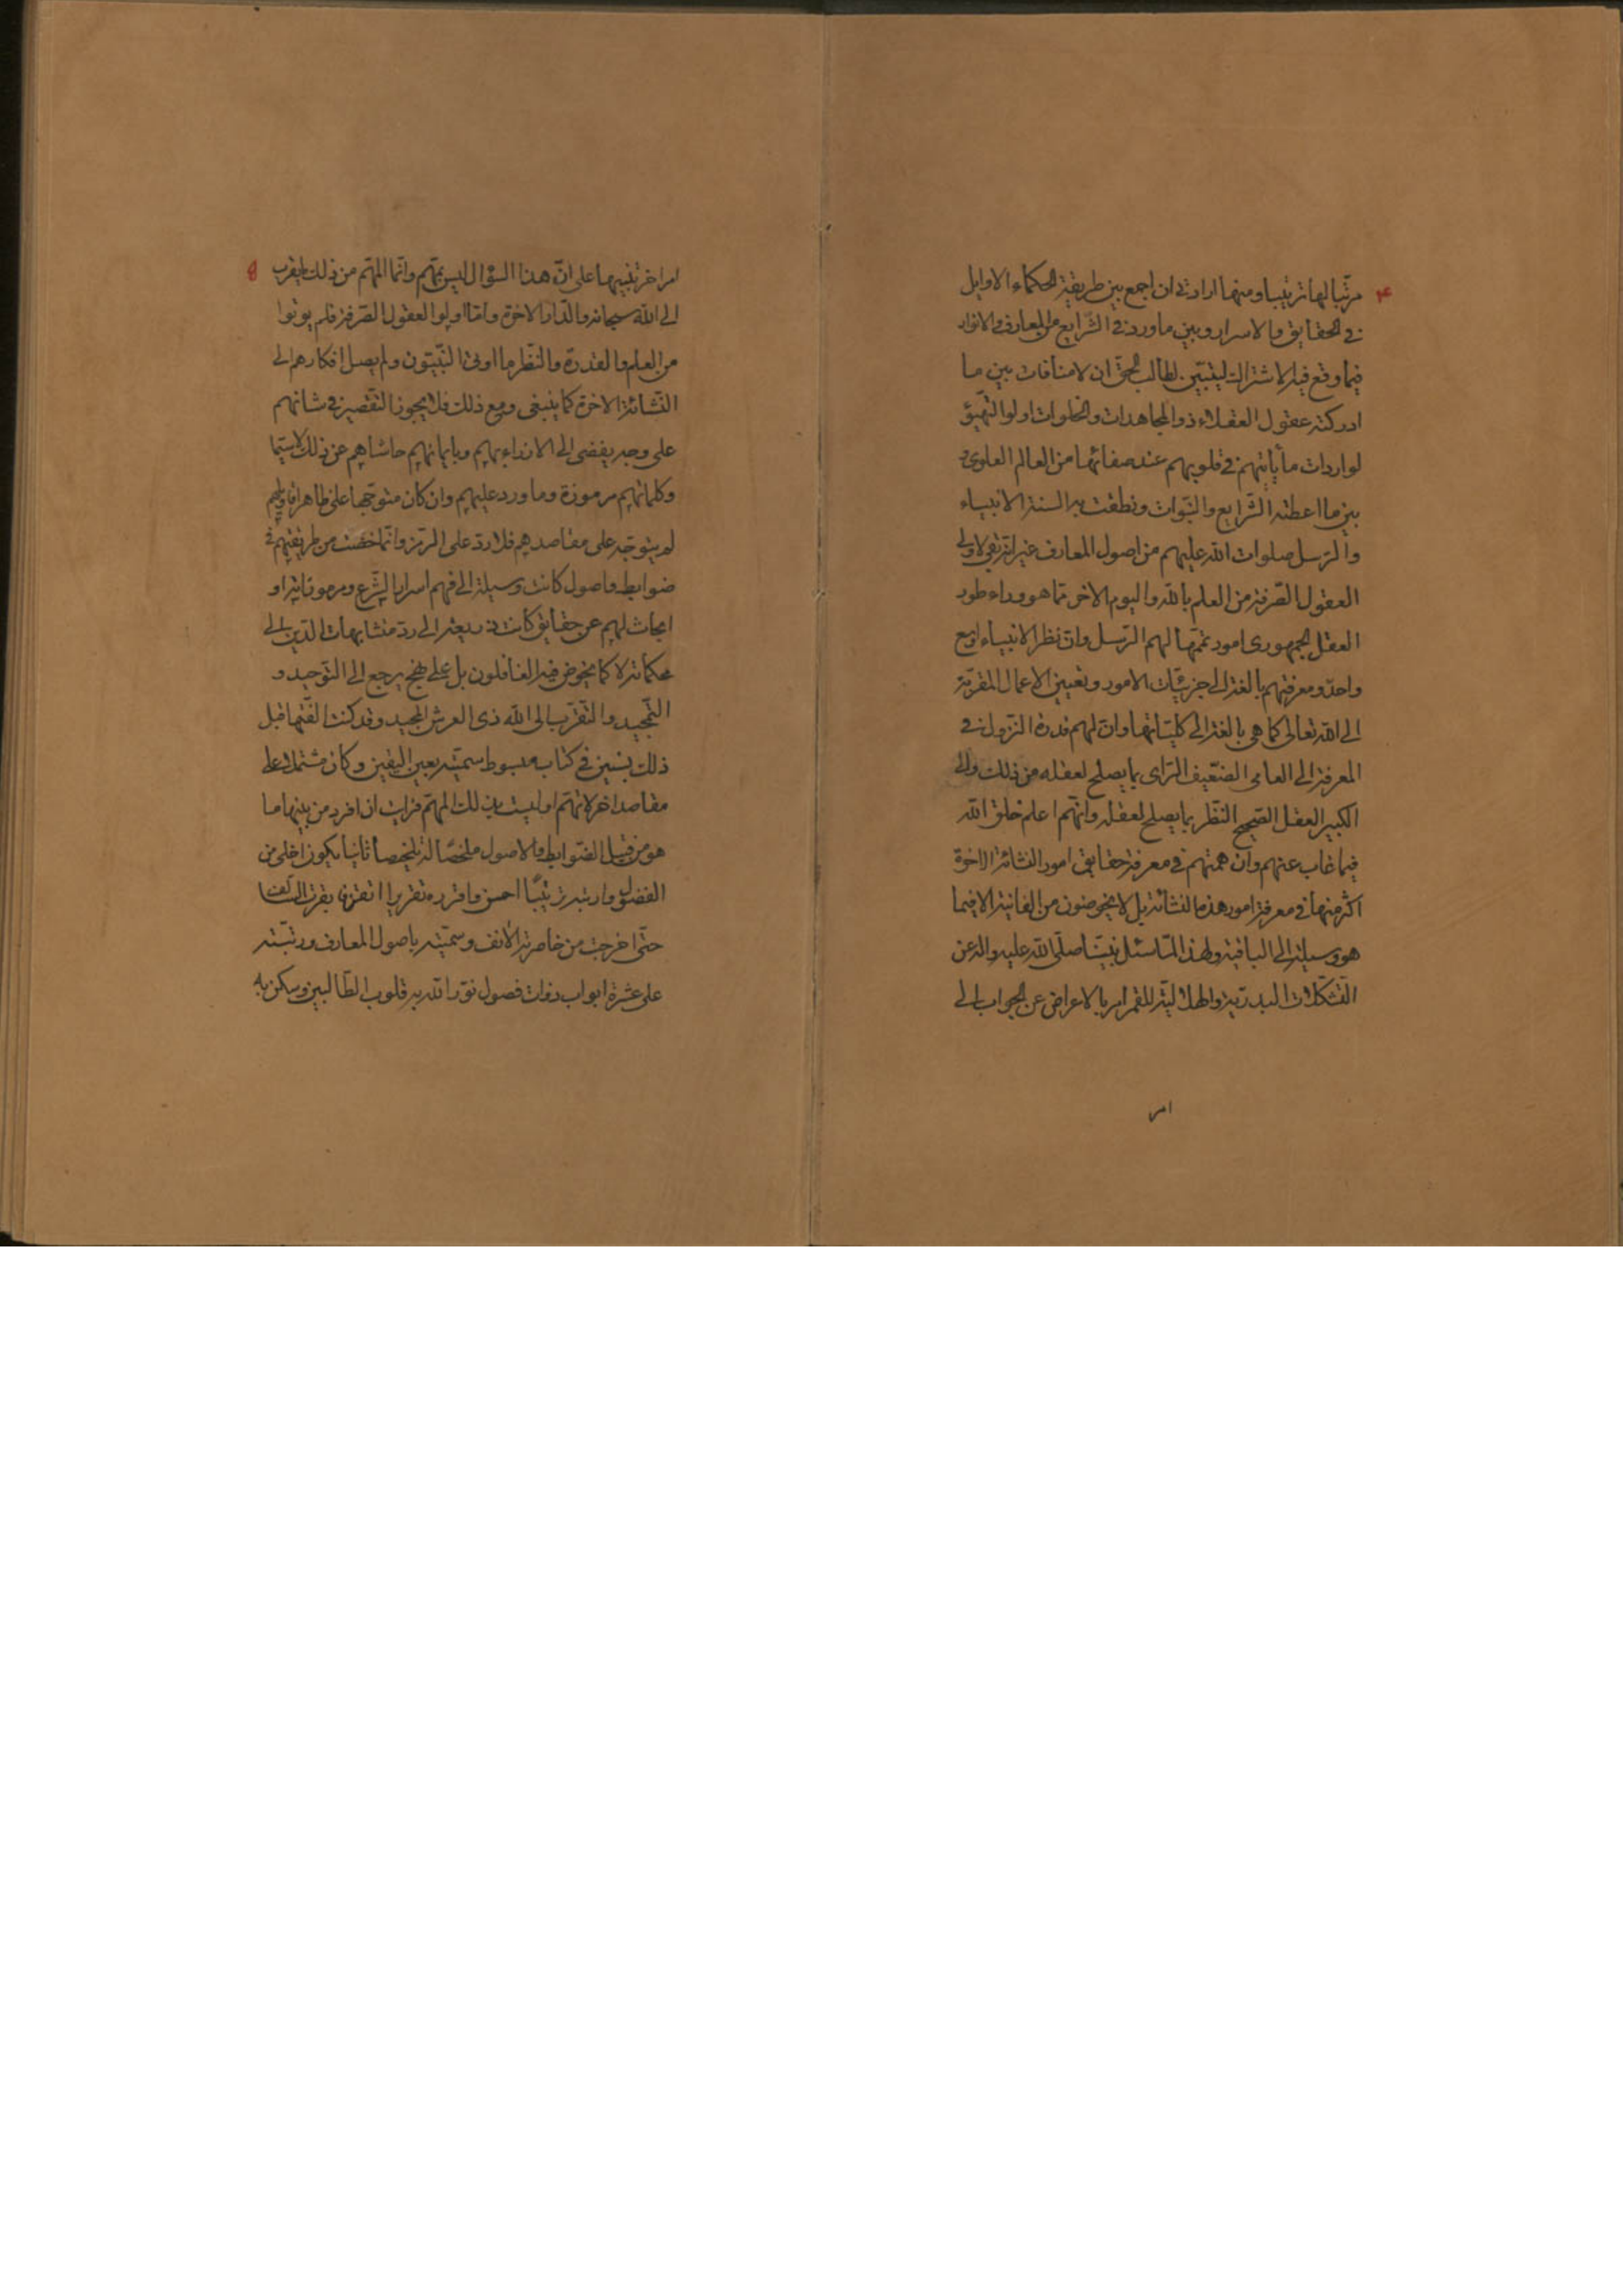 ۴
مرتبا لها ترتيبا ومنها ارادتى ان اجمع بين طريقة الحكماء الاوايل
فى الحقايق والاسرار وبين ما ورد فى الشّرايع من المعارف والانوار
فيما وقع فيه الاشتراك ليتبيّن لطالب الحق ان لا منافات بين ما
ادركته عقول العقلاء ذووا المجاهدات والخلوات اولوا التّهيّؤ
لواردات ما يأتيهم فى قلوبهم عند صفائها من العالم العلوى و
بين ما اعطته الشّرايع والنبّوات ونطقت به السنة الانبياء
والرّسل صلوات الله عليهم من اصول المعارف غير انّه بقى لاولى
العقول الصّرفة من العلم بالله واليوم الاخر ممّا هو وراء طور
العقل الجمهورى امور تمّمها لهم الرّسل وانّ نظر الانبياء اوسع
واحدّ ومعرفتهم بالغة الى جزئيّات الامور وتعيين الاعمال المقرّبة
الى الله تعالى كما هى بالغة الى كليّاتها وانّ لهم قدرة النّزول فى
المعرفة الى العامى الضّعيف الرّاى بما يصلح لعقله من ذلك والى
الكبير العقل الصّحيح النّظر بما يصلح لعقله وانّهم اعلم خلق الله
فيما غاب عنهم وانّ همّتهم فى معرفة حقايق امور النّشائة الاخرة
اكثر منها فى معرفة امور هذه النّشائة بل لا يخوضون من الفانية الا فيما
هو وسيلة الى الباقية ولهذا لمّا سئل نبيّنا صلّى الله عليه واله عن
التّشكّلات البدريّة والهلاليّة للقمر امر بالاعراض عن الجواب الى
امر
۵
امر اخر تنبيها على انّ هذا السّؤال ليس بمهّم وانّما المهّم من ذلك ما يقرب
الى الله سبحانه والدّار الاخرة وامّا اولوا العقول الصّرفة فلم يوتوا
من العلم والقدرة والنّظر ما اوتى النّبيّون ولم يصل افكارهم الى
النّشائة الاخرة كما ينبغى ومع ذلك فلا يجوز التّقصير فى شانهم
على وجه يفضى الى الازراء بهم وبايمانهم حاشاهم عن ذلك لا سيّما
وكلماتهم مرموزة وما ورد عليهم وان كان متوجّها على ظاهر اقاويلهم
لم يتوجّه على مقاصدهم فلا ردّ على الرّمز وانّما خضت من طريقتهم فى
ضوابط واصول كانت وسيلة الى فهم اسرار الشّرع ومرموزاته او
ابحاث لهم عن حقايق كانت ذريعة الى ردّ متشابهات الدّين الى
محكماته لا كما يخوض فيه الغافلون بل على نهج يرجع الى التّوحيد و
التّمجيد والتّقرّب الى الله ذى العرش المجيد وقد كنت الّفتها قبل
ذلك بسنين فى كتاب مبسوط سمّيته بعين اليقين وكان مشتملا على
مقاصد اخر لا تهّم او ليست بذلك المهّم فرايت ان افرد من بينها ما
هو من قبيل الضّوابط والاصول ملخصّا له تلخيصا ثانيا ليكون اخلى من
الفضول وارتبه ترتيبا احسن واقرره تقريرا اتقن
حتّى اخرجت من خاصرته الانف وسمّيته باصول المعارف ورتبّته
على عشرة ابواب ذوات فصول نوّر الله به قلوب الطّالبين وسكن به